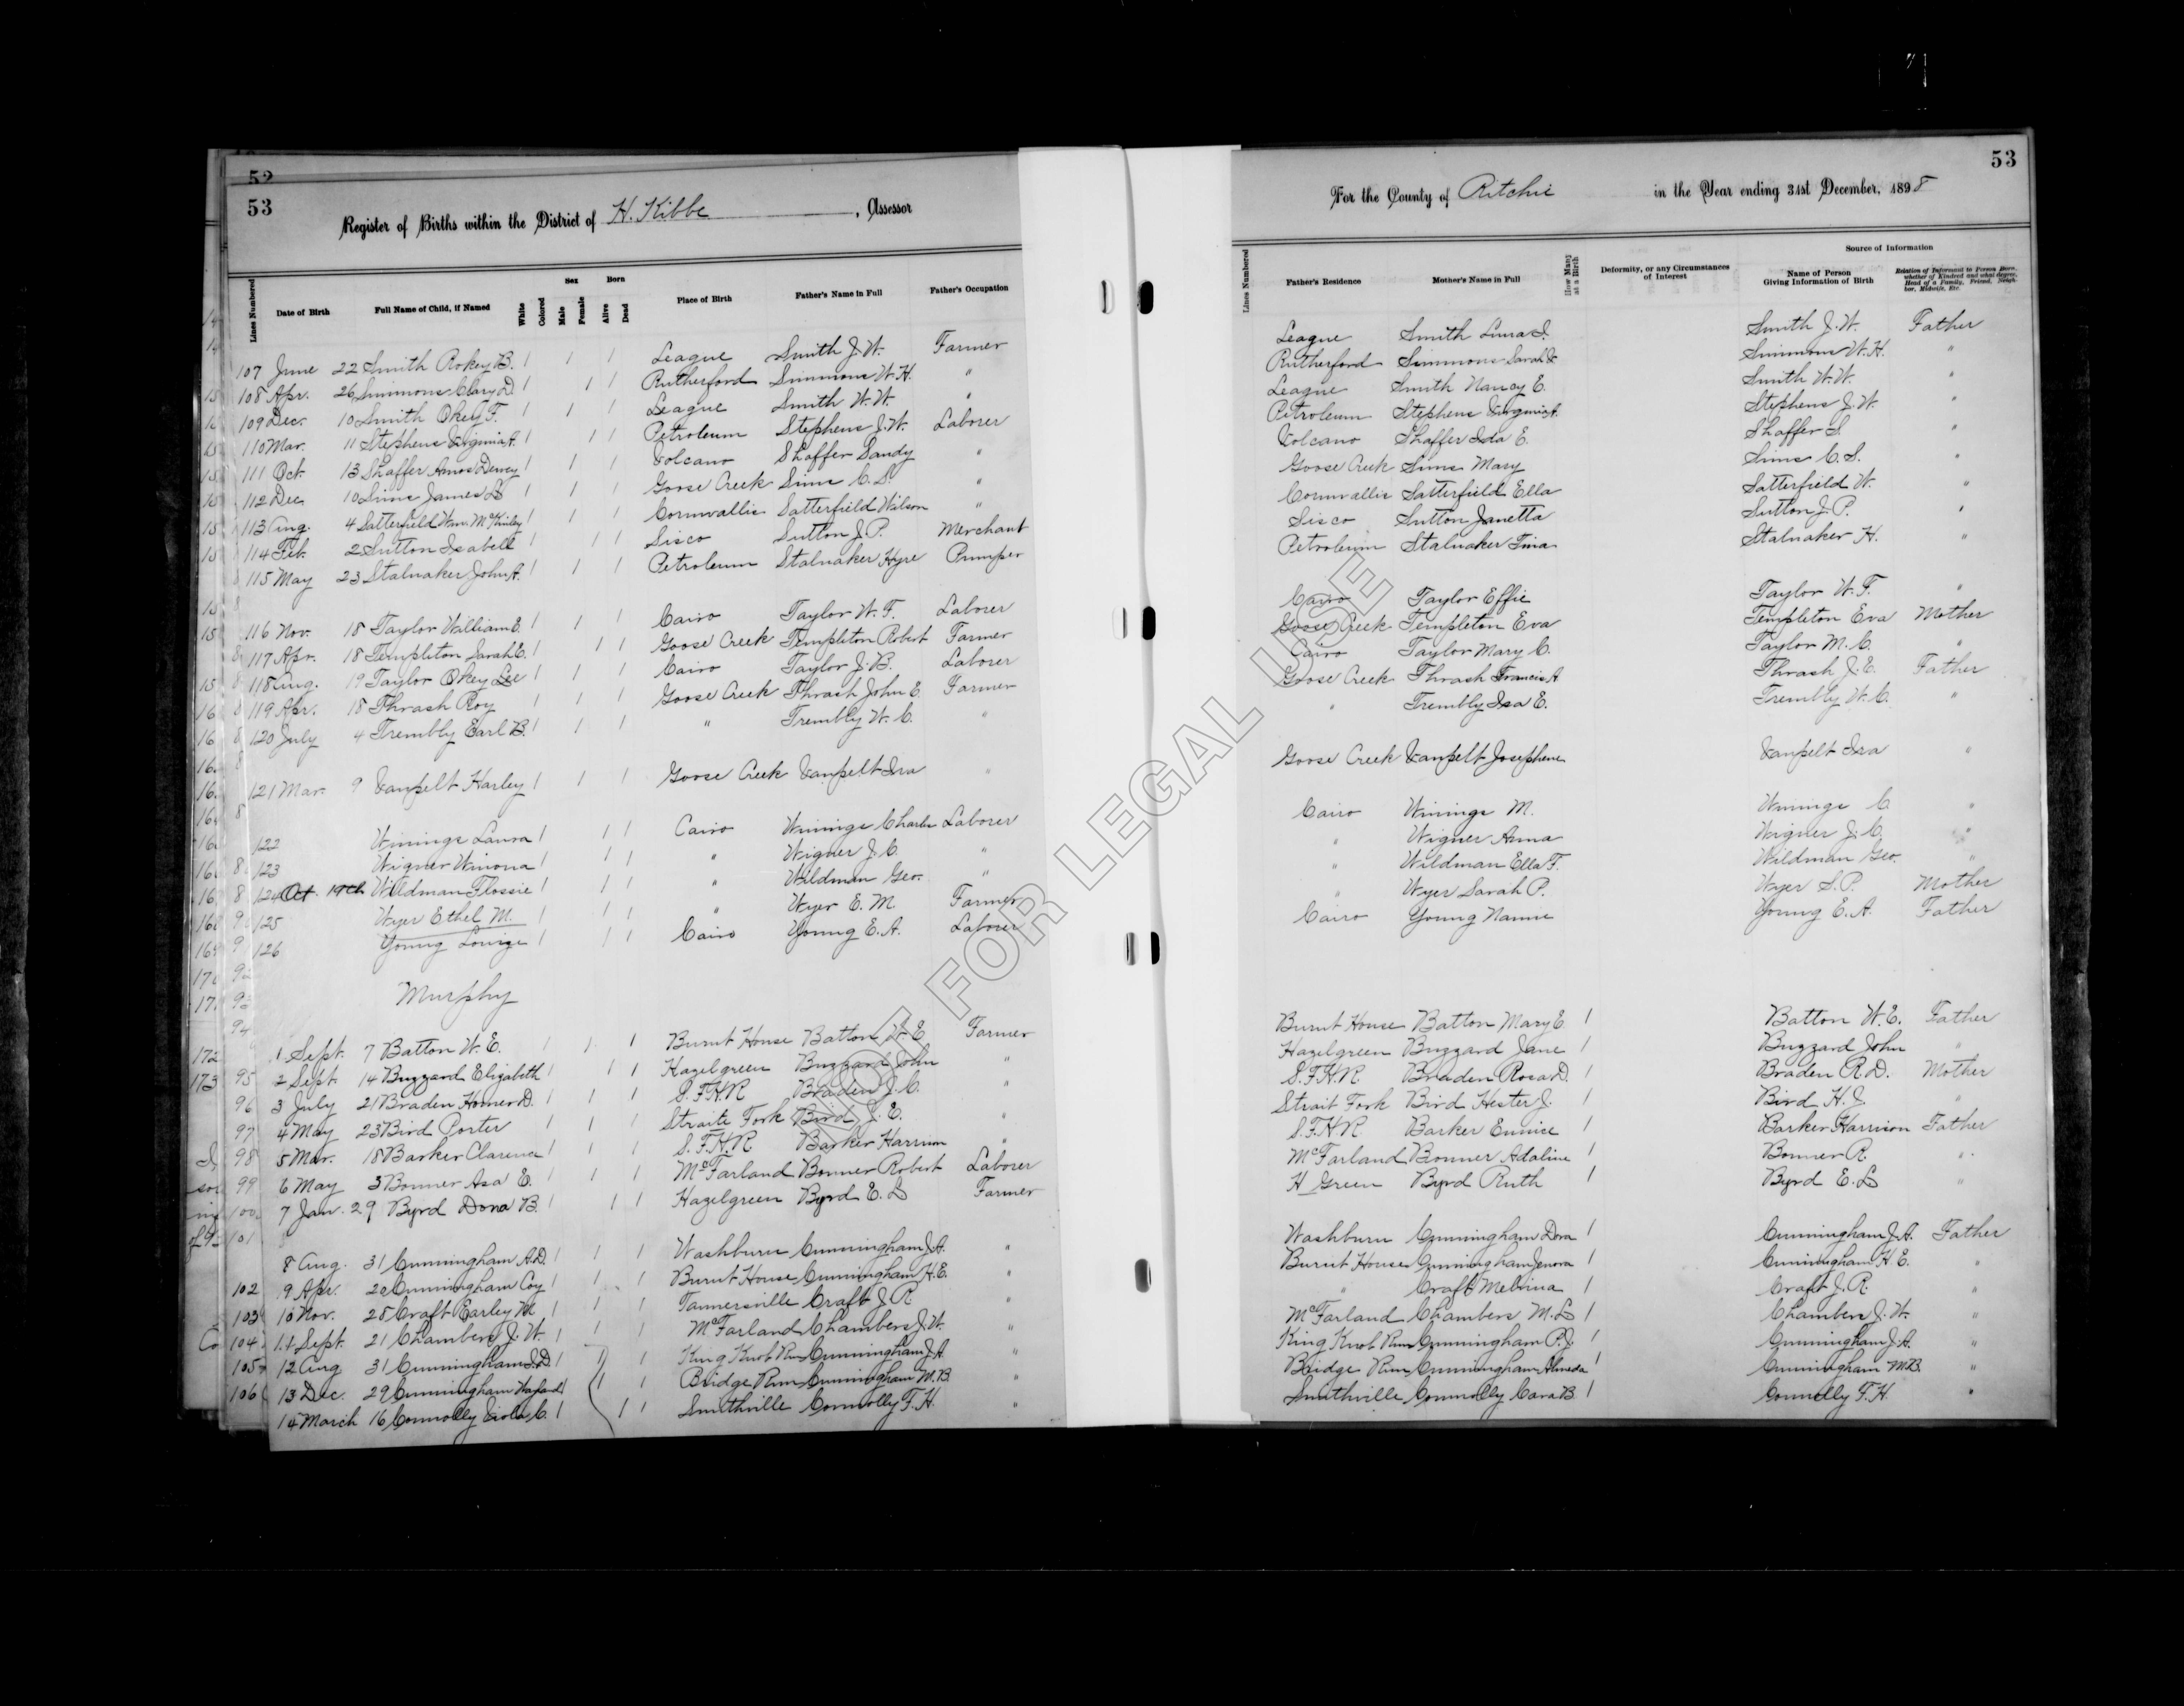 52
53
Register of Births within the District of H. Kibbe, Assessor
Lines Numbered Date of Birth Full Name of Child, if Named White Colored Sex Male Female Born Alive Dead Place of Birth Father's Name in Full Father's Occupation
107 June 22 Smith Rokey B. 1 1 1 League Smith J. W. Farmer
108 Apr. 26 Simmons Clary D. 1 1 1 Rutherford Simmons W. H. "
109 Dec. 10 Smith Okey F. 1 1 1 League Smith W. W. "
110 Mar. 11 Stephens Virginia A. 1 1 1 Petroleum Stephens J. W. Laborer
111 Oct. 13 Shaffer Amos Dewey 1 1 1 Volcano Shaffer Sandy "
112 Dec 10 Sims James 1 1 1 Goose Creek Sims C. S. "
113 Aug. 4 Satterfield Wm. McKinley 1 1 1 Cornwallis Satterfield Wilson "
114 Feb. 2 Sutton Isabell 1 1 1 Sisco Sutton J. P. Merchant
115 May 23 Stalnaker John A. 1 1 1 Petroleum Stalnaker Hyre Pumper
116 Nov. 18 Taylor William E. 1 1 1 Cairo Taylor W. F. Laborer
117 Apr. 18 Templeton Sarah E. 1 1 1 Goose Creek Templeton Robert Farmer
118 Aug. 19 Taylor Okey Lee 1 1 1 Cairo Taylor J. B. Laborer
119 Apr. 18 Thrash Roy 1 1 1 Goose Creek Thrash John E. Farmer
120 July 4 Trembly Earl B. 1 1 1 " Trembly W. C. "
121 Mar. 9 Vanpelt Harley 1 1 1 Goose Creek Vanpelt Ira "
122 Winings Laura 1 1 1 Cairo Winings Charles Laborer
123 Wigner Winona 1 1 1 " Wigner J. C. "
124 Oct. 19th Wildman Flossie 1 1 1 " Wildman Geo. "
125 Wyer Ethel M. 1 1 1 " Wyer E. M Farmer
126 Young Louize 1 1 1 Cairo Young E. A. Laborer
Murphy
1 Sept. 7 Batton W. E. 1 1 1 Burnt House Batton W. E Farmer
2 Sept. 14 Buzzard Elizabeth 1 1 1 Hazelgreen Buzzard John "
3 July 21 Braden Homer D. 1 1 1 S. F. H. R Braden J. C. "
4 May 23 Bird Porter 1 1 1 Straite Fork Bird J. E. "
5 Mar. 18 Barker Clarence 1 1 1 S. F. H. R. Barker Harrison "
6 May 3 Bonner Asa E. 1 1 1 McFarland Bonner Robert Laborer
7 Jan. 29 Byrd Dona B. 1 1 1 Hazelgreen Byrd E. L Farmer
8 Aug. 31 Cunningham A. D. 1 1 1 Washburn Cunningham J. A. "
9 Apr. 20 Cunningham Coy 1 1 1 Burnt House Cunningham H. E. "
10 Nov. 25 Craft Earley M. 1 1 1 Tannersville Craft J. R. "
11 Sept. 21 Chambers J. W. 1 1 1 McFarland Chambers J. W. "
12 Aug 31 Cunningham 1 1 1 King Knob Run Cunningham J. A. "
13 Dec. 29 Cunningham 1 1 1 Bridge Run Cunningham M. B. "
14 March 16 Connolly Viola C. 1 1 1 Smithville Connolly F. H. "
53
For the County of Ritchie in the Year ending 31st December, 1898
Lines Numbered Father's Residence Mother's Name in Full How Many at a Birth Deformity, or any Circumstances of Interest Source of Information Name of Person Giving Information of Birth Relation of Informant to Person Born, whether of Kindred and what degree, Head of a Family, Friend, Neighbor, Midwife, Etc.
League Smith Lura S. Smith J. W. Father
Rutherford Simmons Sarah Simmons W. H. "
League Smith Nancy E. Smith W. W. "
Petroleum Stephens Virginia A. Stephens J. W. "
Volcano Shaffer Ida E. Shaffer S. "
Goose Creek Sims Mary Sims C. S. "
Cornwallis Satterfield Ella Satterfield W. "
Sisco Sutton Janetta Sutton J. P. "
Petroleum Stalnaker Tina Stalnaker H. "
Cairo Taylor Effie Taylor W. F. "
Goose Creek Templeton Eva Templeton Eva Mother
Cairo Taylor Mary C. Taylor M. C. "
Goose Creek Thrash Francis A Thrash J. E. Father
" Trembly Isa E. Trembly W. C. "
Goose Creek Vanpelt Josephene Vanpelt Ira "
Cairo Winings M. Winings C "
" Wigner Anna Wigner J. C. "
" Wildman Ella F. Wildman Geo. "
" Wyer Sarah P. Wyer S. P. Mother
Cairo Young Nannie Young E. A. Father
Burnt House Batton Mary E. 1 Batton W. E. Father
Hazelgreen Buzzard Jane 1 Buzzard John "
S. F. H. R. Braden Rosa D. 1 Braden R. D. Mother
Strait Fork Bird Hester J. 1 Bird H. J. "
S. F. H R. Barker Eunice 1 Barker Harrison Father
McFarland Bonner Adaline 1 Bonner R. "
H Green Byrd Ruth 1 Byrd E. L "
Washburn Cunningham Dora 1 Cunningham J. A. Father
Burnt House Cunningham Jenora 1 Cunningham H. E. "
" Craft Melvina 1 Craft J. R. "
McFarland Chambers M. L 1 Chambers J. W. "
King Knob Run Cunningham P. J. 1 Cunningham J. A. "
Bridge Run Cunningham Almeda 1 Cunningham M. B. "
Smithville Connolly Cara B. 1 Connolly F. H. "
NOT FOR LEGAL USE